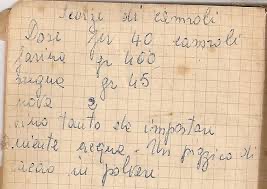 Scorze di cannoli
Dose per 40 cannoli
farina gr 400
sugna gr 45
uova 2
vino tanto da impastare
niente acqua. Un pizzico di
cacao in polvere